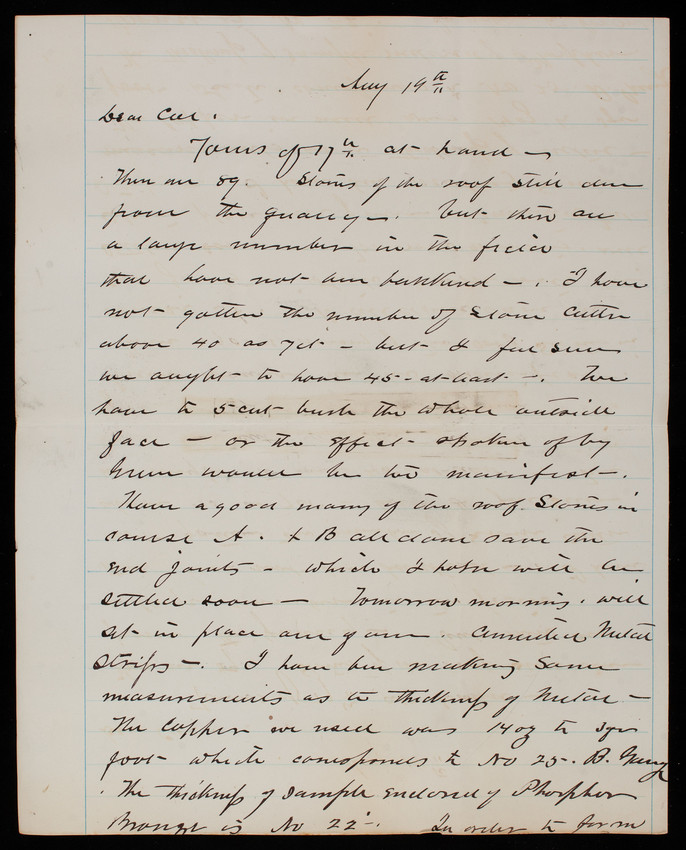 Aug 19th
Dear Col.
Yours of 17th at hand –
There are 89. Stones of the roof still due
from the quarry –. but there are
a large number in the field
that have not been – . I have
not gotten the number of Stone Cutters
above 40 as yet – but I feel sure
we aught to have 45 – at least –. We
have to 5 cut bush the whole outside
face – or the effect spoken of by
Green would be too manifest –.
Have a good many of the roof Stones in
course A. & B all done save the
end joints – which I hope will be
settled soon – Tomorrow morning. will
set in place one of our. Metal
Strips –. I have been making Some
measurements as to thickness of Metal –
The Copper we used was 14 oz to sqr
foot which corresponds to No 25. B. Gaug
. The thickness of Sample enclosed of Phosphor
Bronze is No 22 –. In order to form